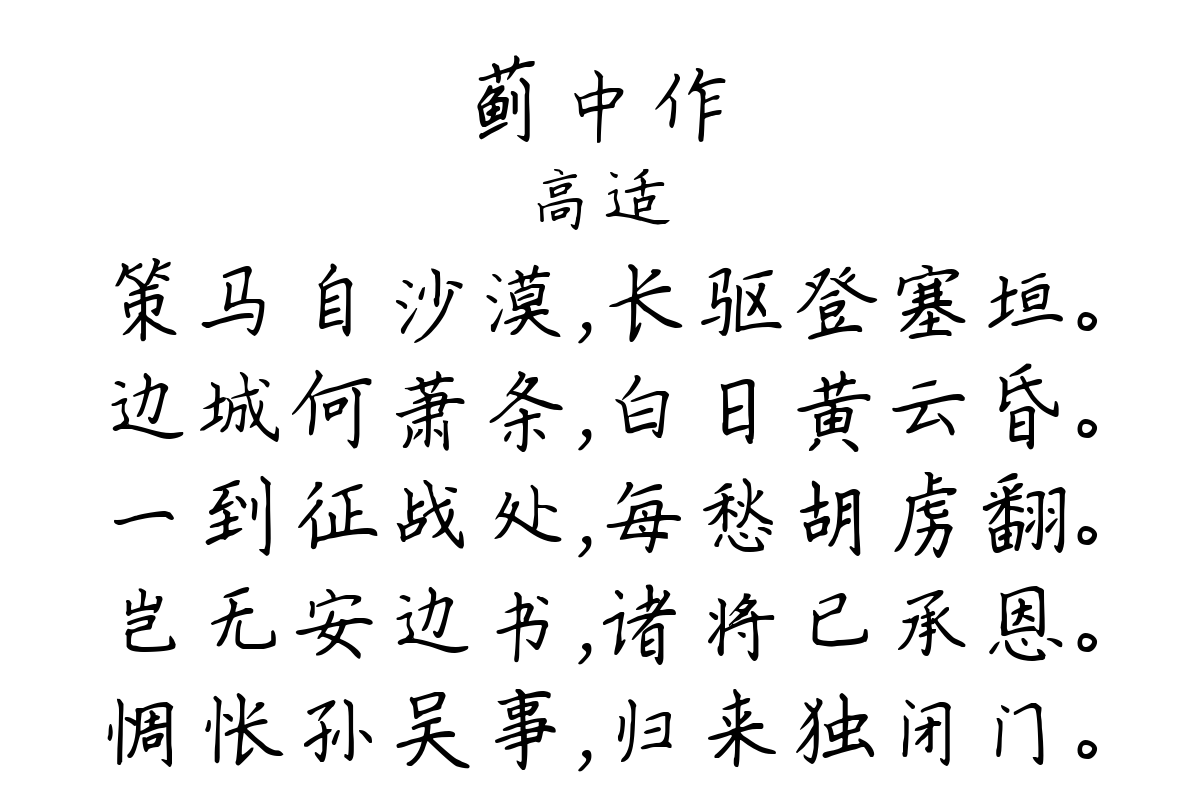 蓟中作
高适
策马自沙漠,长驱登塞垣。
边城何萧条,白日黄云昏。
一到征战处,每愁胡虏翻。
岂无安边书,诸将已承恩。
惆怅孙吴事,归来独闭门。